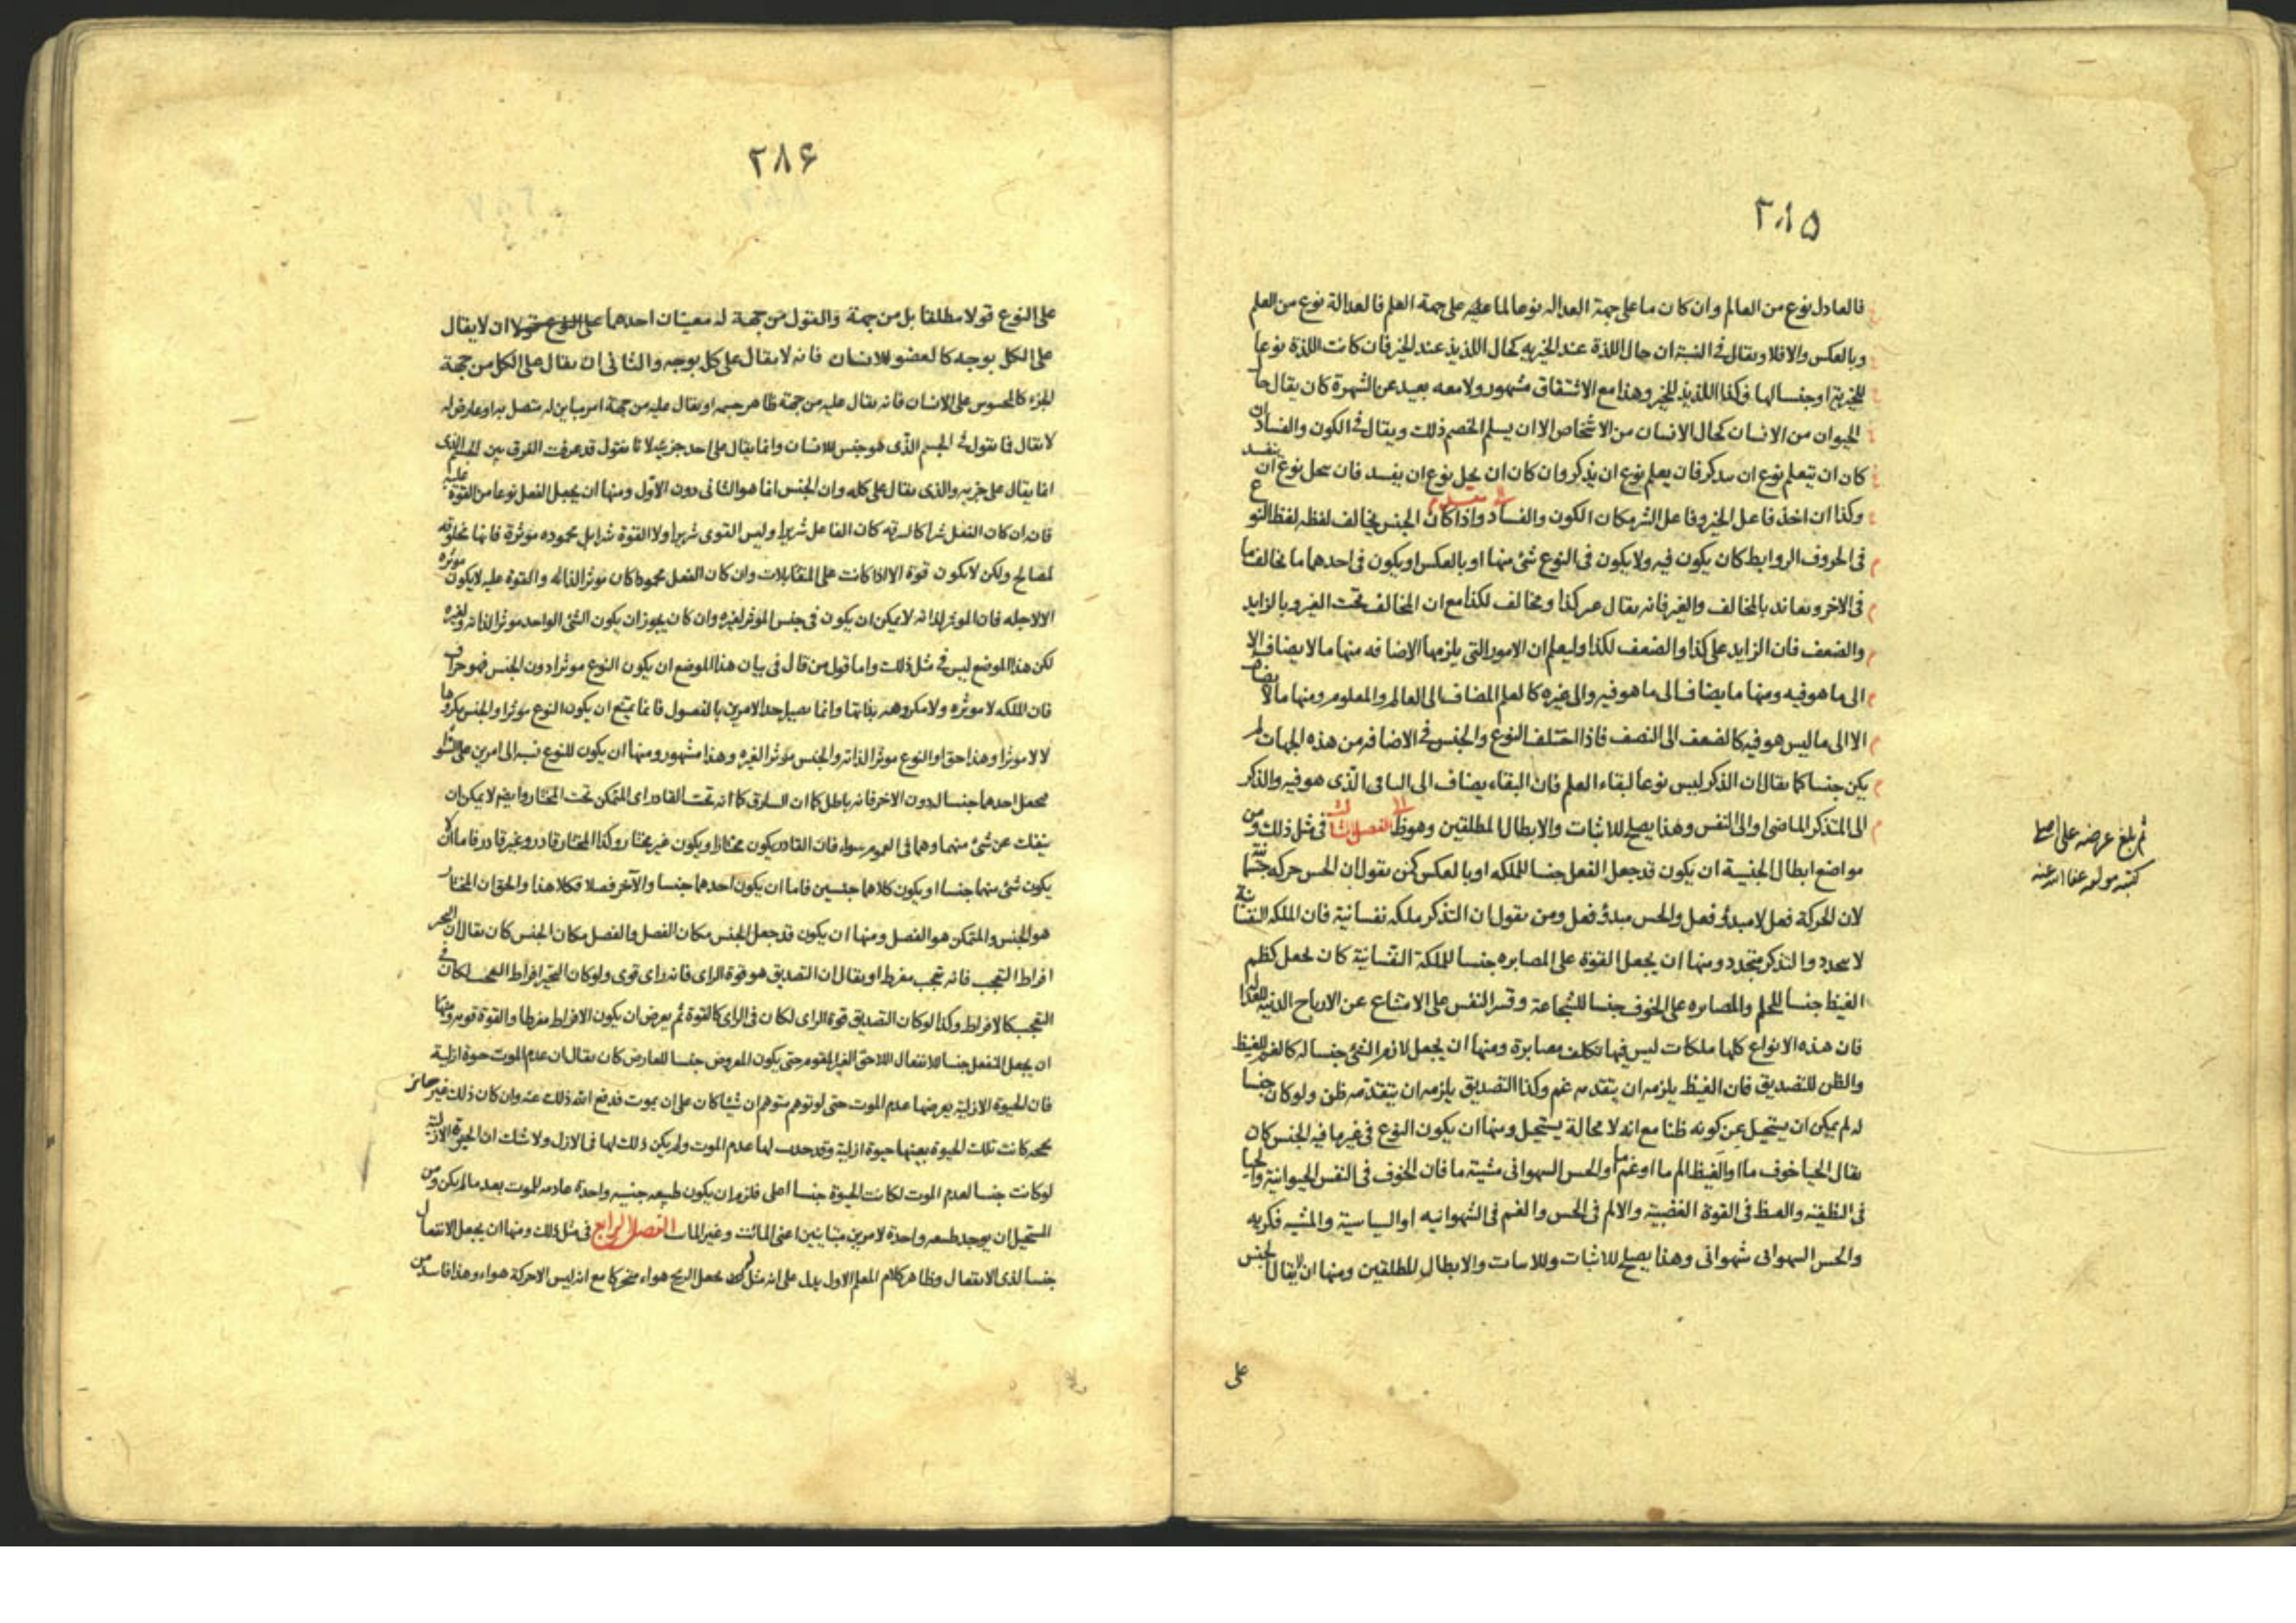 ٢٨٥
فالعادل نوع من العالم وان كان ما على جهة العداله نوعا لما عليه على جهة العلم فالعدالة نوع من العلم
وبالعكس والافلا ويقال فى النسبة ان حال اللذة عند الخيريه كحال اللذيذ عند الخير فان كانت اللذة نوعا
للخيرية او جنسا لها فكذا اللذيذ للخير وهذا مع الاشتقاق مشهور ولا معه بعيد عن الشهرة كان يقال حا
الحيوان من الانسان كحال الانسان من الاشخاص الا ان يسلم الخصم ذلك ويقال فى الكون والفساد
كان ان يتعلم نوع ان يتذكر فان يعلم نوع ان يذكر وان كان ان يحل نوع ان يفسد فان يتحل نوع ان ينفسد
وكذا ان اخذ فاعل الخير وفاعل الشر مكان الكون والفساد واذا كان الجنس يخالف لفظه لفظ النوع
فى الحروف الروابط كان يكون فيه ولا يكون فى النوع شئ منها او بالعكس او يكون فى احدهما ما يخالف ما
فى الاخر ويعاند بالمخالف والغير فانه يقال غير كذا ومخالف لكذا مع ان المخالف تحت الغير وبالزايد
والضعف فان الزايد على كذا والضعف لكذا وليعلم ان الامور التى يلزمها الاضافه منها ما لا يضاف الا
الى ما هو فيه ومنها ما يضاف الى ما هو فيه والى غيره كالعلم المضاف الى العالم والمعلوم ومنها ما لا يضاف
الا الى ما ليس هو فيه كالضعف الى النصف فاذا اختلف النوع والجنس فى الاضافه من هذه الجهات لم
يكن جنسا كما يقال ان الذكر ليس نوعا لبقاء العلم فان البقاء يضاف الى الباقى الذى هو فيه والذكر
الى المتذكر الماضى او الى النفس وهذا يصلح للاثبات والابطال المطلقين وهو ظ الفصل الثالث فى مثل ذلك ومن
مواضع ابطال الجنسية ان يكون قد جعل الفعل جنسا للملكه او بالعكس كمن يقول ان الحس حركه جسمانية
لان الحركة فعل لا مبدؤ فعل والحس مبدؤ فعل ومن يقول ان التذكر ملكه نفسانية فان الملكه النفسانية
لا يتجدد والتذكر يتجدد ومنها ان يجعل القوة على المصابره جنسا للملكة النفسانية كان يجعل كظم
الغيظ جنسا للحلم والمصابره على الخوف جنسا للشجاعة وقسر النفس على الامتناع عن الارباح الدنية للعدالة
فان هذه الانواع كلها ملكات ليس فيها تكلف مصابرة ومنها ان يجعل لازم الشئ جنسا له كالغم للغيظ
والظن للتصديق فان الغيظ يلزمه ان يتقدمه غم وكذا التصديق يلزمه ان يتقدمه ظن ولو كان جنسا
له لم يمكن ان يستحيل عن كونه ظنا مع انه لا محالة يستحيل ومنها ان يكون النوع فى غير ما فيه الجنس كان
يقال الحيا خوف ما او الغيظ الم ما او غم ما او الحس الشهوانى مشية ما فان الخوف فى النفس الحيوانية والحيا
فى النطقية والغيظ فى القوة الغضبية والالم فى الحس والغم فى الشهوانيه او السياسية والمشيه فكريه
والحس الشهوانى شهوانى وهذا يصلح للاثبات والابطال المطلقين ومنها ان لا يقال الجنس
على
ثم بلغ عرضه على اصله
كتبه مؤلفه عفا الله عنه
٢٨۶
على النوع قولا مطلقا بل من جهة والقول من جهة له معينان احدهما ان لا يقال
على الكل بوجه كالعضو للانسان فانه لا يقال على كل بوجه والثانى ان يقال على الكل من جهة
الجزء كالمحسوس على الانسان فانه يقال عليه من جهة ظاهر جسمه او يقال عليه من جهة امر مباين له متصل به او عارض له
لا يقال فما تقول فى الجسم الذى هو جنس للانسان وانما يقال على احد جزئيه لانا نقول قد عرفت الفرق بين الجسم الذى
انما يقال على جزيه والذى يقال على كله وان الجنس انما هو الثانى دون الاول ومنها ان يجعل الفعل نوعا من القوة عليه
فان ان كان الفعل شرا كالسرقه كان الفاعل شريرا وليس القوى شريرا ولا القوة شرا بل محموده مؤثرة فانها مخلوقه
لمصالح ولكن لا يكون قوة الا اذا كانت على المتقابلات وان كان الفعل محمودا كان مؤثرا لذاته والقوة عليه لا يكون مؤثره
الا لاجله فان المؤثر لذاته لا يمكن ان يكون فى جنس المؤثر لغيره وان كان يجوز ان يكون الشئ الواحد مؤثرا لذاته ولغيره
لكن هذا الموضع ليس فى مثل ذلك واما قول من قال فى بيان هذا الموضع ان يكون النوع مؤثرا دون الجنس فهو جزاف
فان الملكه لا مؤثره ولا مكروهه بذاتها وانما يصير احد الامرين بالفصول فانما يمتنع ان يكون النوع مؤثرا والجنس مكروها
لا لا مؤثرا وهذا حق او النوع مؤثرا لذاته والجنس مؤثرا لغيره وهذا مشهور ومنها ان يكون للنوع نسبه الى امرين على السواء
فيجعل احدهما جنسا له دون الاخر فانه باطل كما ان السارق كما انه تحت القادر اى المتمكن تحت المختار وايضا لا يمكن ان
ينفك عن شئ منهما وهما فى العموم سواء فان القادر يكون مختارا ويكون غير مختار وكذا المختار قادر وغير قادر فاما ان لا
يكون شئ منهما جنسا او يكون كلاهما جنسين فاما ان يكون احدهما جنسا والآخر فصلا فكلا هذا والحق ان المختار
هو الجنس والمتمكن هو الفصل ومنها ان يكون قد جعل الجنس مكان الفصل والفصل مكان الجنس كان يقال ان التحير
افراط التعجب فانه تعجب مفرط او يقال ان التصديق هو قوة الراى فانه راى قوى ولو كان التحير افراط التعجب لكان فى
التعجب كالافراط وكذا لو كان التصديق قوة الراى لكان فى الراى كالقوة ثم يعرض ان يكون الافراط مفرطا والقوة قويه ومنها
ان يجعل المنفعل جنسا للانفعال اللاحق الغير المقوم حتى يكون المعروض جنسا للعارض كان يقال ان عدم الموت حيوة ازلية
فان الحيوة الازلية يعرضها عدم الموت حتى لو توهم متوهم ان شيئا كان على ان يموت فدفع الله ذلك عنه وان كان ذلك غير جائز
كانت تلك الحيوة بعينها حيوة ازلية وقد حدث لها عدم الموت ولم يكن ذلك لها فى الازل ولا شك ان الحيوة الازلية
لو كانت جنسا لعدم الموت لكانت الحيوة جنسا اعلى فلزم ان يكون طبيعه جنسيه واحدة عادمه للموت بعد ما لم يكن ومن
المستحيل ان يوجد طبيعه واحدة لامرين متباينين اعنى المائت وغير المائت الفصل الرابع فى مثل ذلك ومنها ان يجعل الانفعال
جنسا لذى الانفعال وظاهر كلام المعلم الاول يدل على انه مثل ان يجعل الريح هواء متحركا مع انه ليس الا حركة هواء وهذا فاسد من